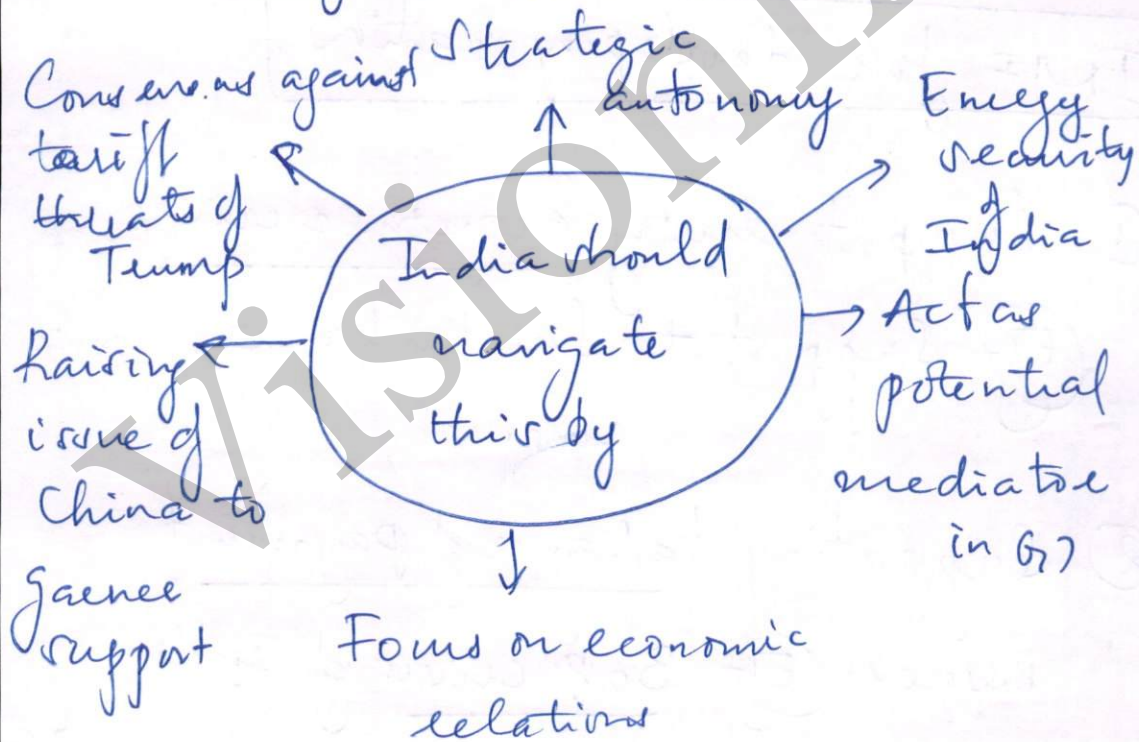 Strategic
autonomy
Consensus against
tariff
threats of
Trump
Energy
security
of
India
India should
navigate
this by
Act as
potential
mediator
in G7
Raising
issue of
China to
garner
support
Focus on economic
relations
Vision